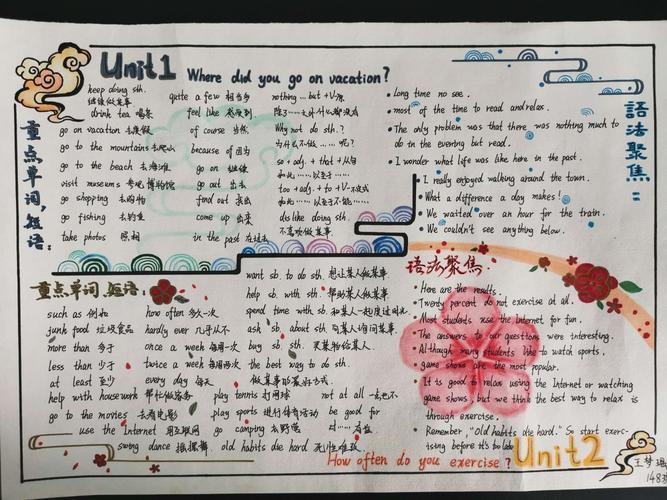 Unit1 Where did you go on vacation?
重点单词,短语:
keep doing sth.
继续做某事
drink tea 喝茶
go on vacation 去度假
go to the mountains 去爬山
go to the beach 去海滩
visit museums 参观博物馆
go shopping 去购物
go fishing 去钓鱼
take photos 照相
quite a few 相当多
feel like 感受到
of course 当然
because of 因为
go on 继续
go out 出去
find out 找出
come up 出来
in the past 在过去
nothing ... but + V-原
除了……之外什么都没有
Why not do sth.?
为什么不做……呢?
so + adj. + that + 从句
如此……以至于……
too + adj. + to + V-不定式
如此……以至于不能……
dislike doing sth.
不喜欢做某事
語法聚焦:
Long time no see.
most of the time to read and relax.
The only problem was that there was nothing much to
do in the evening but read.
I wonder what life was like here in the past.
I really enjoyed walking around the town.
What a difference a day makes!
We waited over an hour for the train.
We couldn't see anything below.
重点单词、短语:
such as 例如
junk food 垃圾食品
more than 多于
less than 少于
at least 至少
help with housework 帮忙做家务
go to the movies 去看电影
use the Internet 用互联网
how often 多久一次
hardly ever 几乎从不
once a week 每周一次
twice a week 每周两次
every day 每天
play tennis 打网球
play sports 进行体育活动
go camping 去野营
swing dance 摇摆舞
old habits die hard 积习难改
want sb. to do sth. 想让某人做某事
help sb. with sth. 帮助某人做某事
spend time with sb. 和某人一起度过时光
ask sb. about sth. 向某人询问某事
buy sb. sth. 买某物给某人
the best way to do sth.
做某事的最好方式
not at all 一点也不
be good for
对……有益
语法聚焦
Here are the results.
Twenty percent do not exercise at all.
Most students use the Internet for fun.
The answers to our questions were interesting.
Although many students like to watch sports,
game shows are the most popular.
It is good to relax using the Internet or watching
game shows but we think the best way to relax is
through exercise.
Remember, "Old habits die hard." So start exerc-
ising before it's too late
How often do you exercise? Unit2
王梦